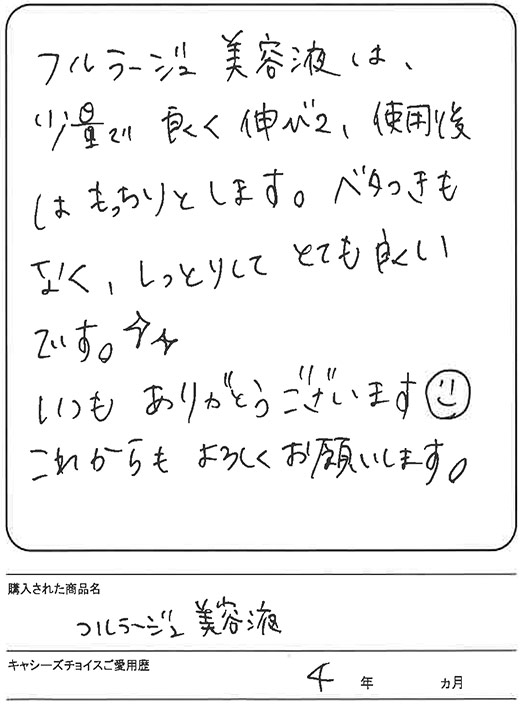 フルラージュ 美容液は、
少量で 良く伸びて、使用後
はもっちりとします。ベタつきも
なく、しっとりして とても良い
です。
いつも ありがとうございます
これからも よろしくお願いします。
購入された商品名
フルラージュ 美容液
キャシーズチョイスご愛用歴
4 年 カ月